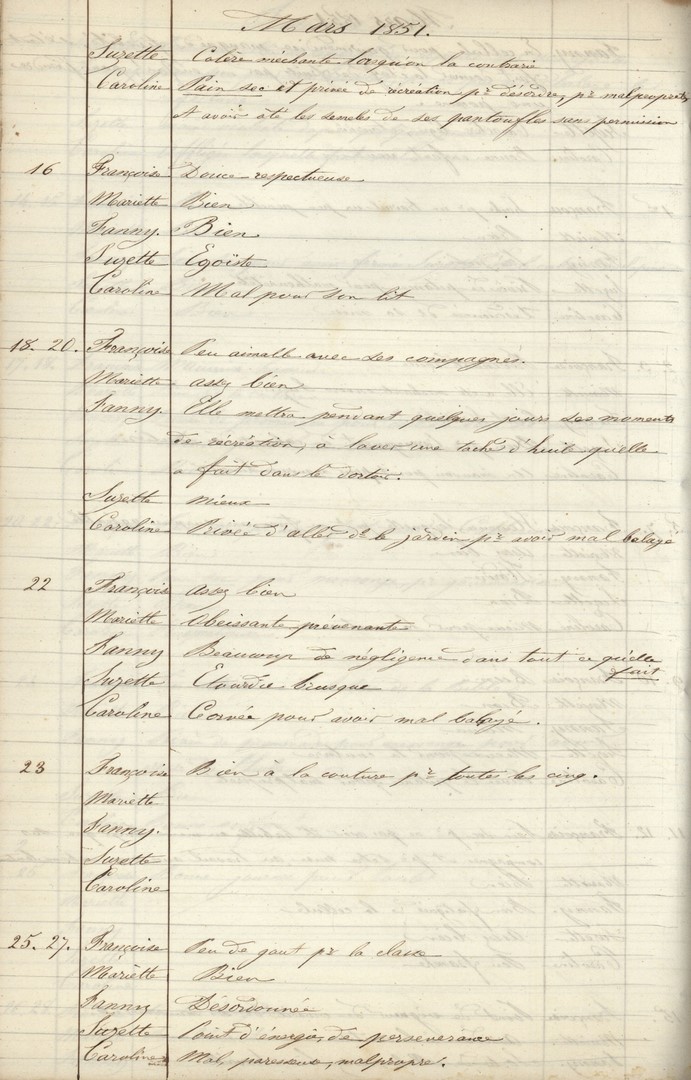 Mars 1851.
Suzette Colère méchante lorsqu'on la contrarie
Caroline Pain sec et privée de récréation pr désordre, pr malpropreté
et avoir oté les semeles de ses pantoufles sans permission
16 Françoise Douce respectueuse
Mariette Bien
Fanny. Bien
Suzette Egoïste
Caroline Mal pour son lit
18. 20. Françoise Peu aimable avec ses compagnes.
Mariette assez bien
Fanny. Elle mettra pendant quelques jours ses moments
de récréation, à laver une tache d'huile qu'elle
a fait dans le dortoir.
Suzette mieux
Caroline Privée d'aller ds le jardin pr avoir mal balayé
22 Françoise assez bien
Mariette Obeissante prévenante
Fanny Beaucoup de négligence dans tout ce qu'elle
fait
Suzette Etourdie brusque
Caroline Corvée pour avoir mal balayé.
23 Françoise Bien à la couture pr toutes les cinq.
Mariette
Fanny.
Suzette
Caroline
25. 27. Françoise Peu de gout pr la classe
Mariette Bien
Fanny Désordonnée
Suzette Point d'énergie, de perseverance
Caroline Mal, paresseuse, malpropre.